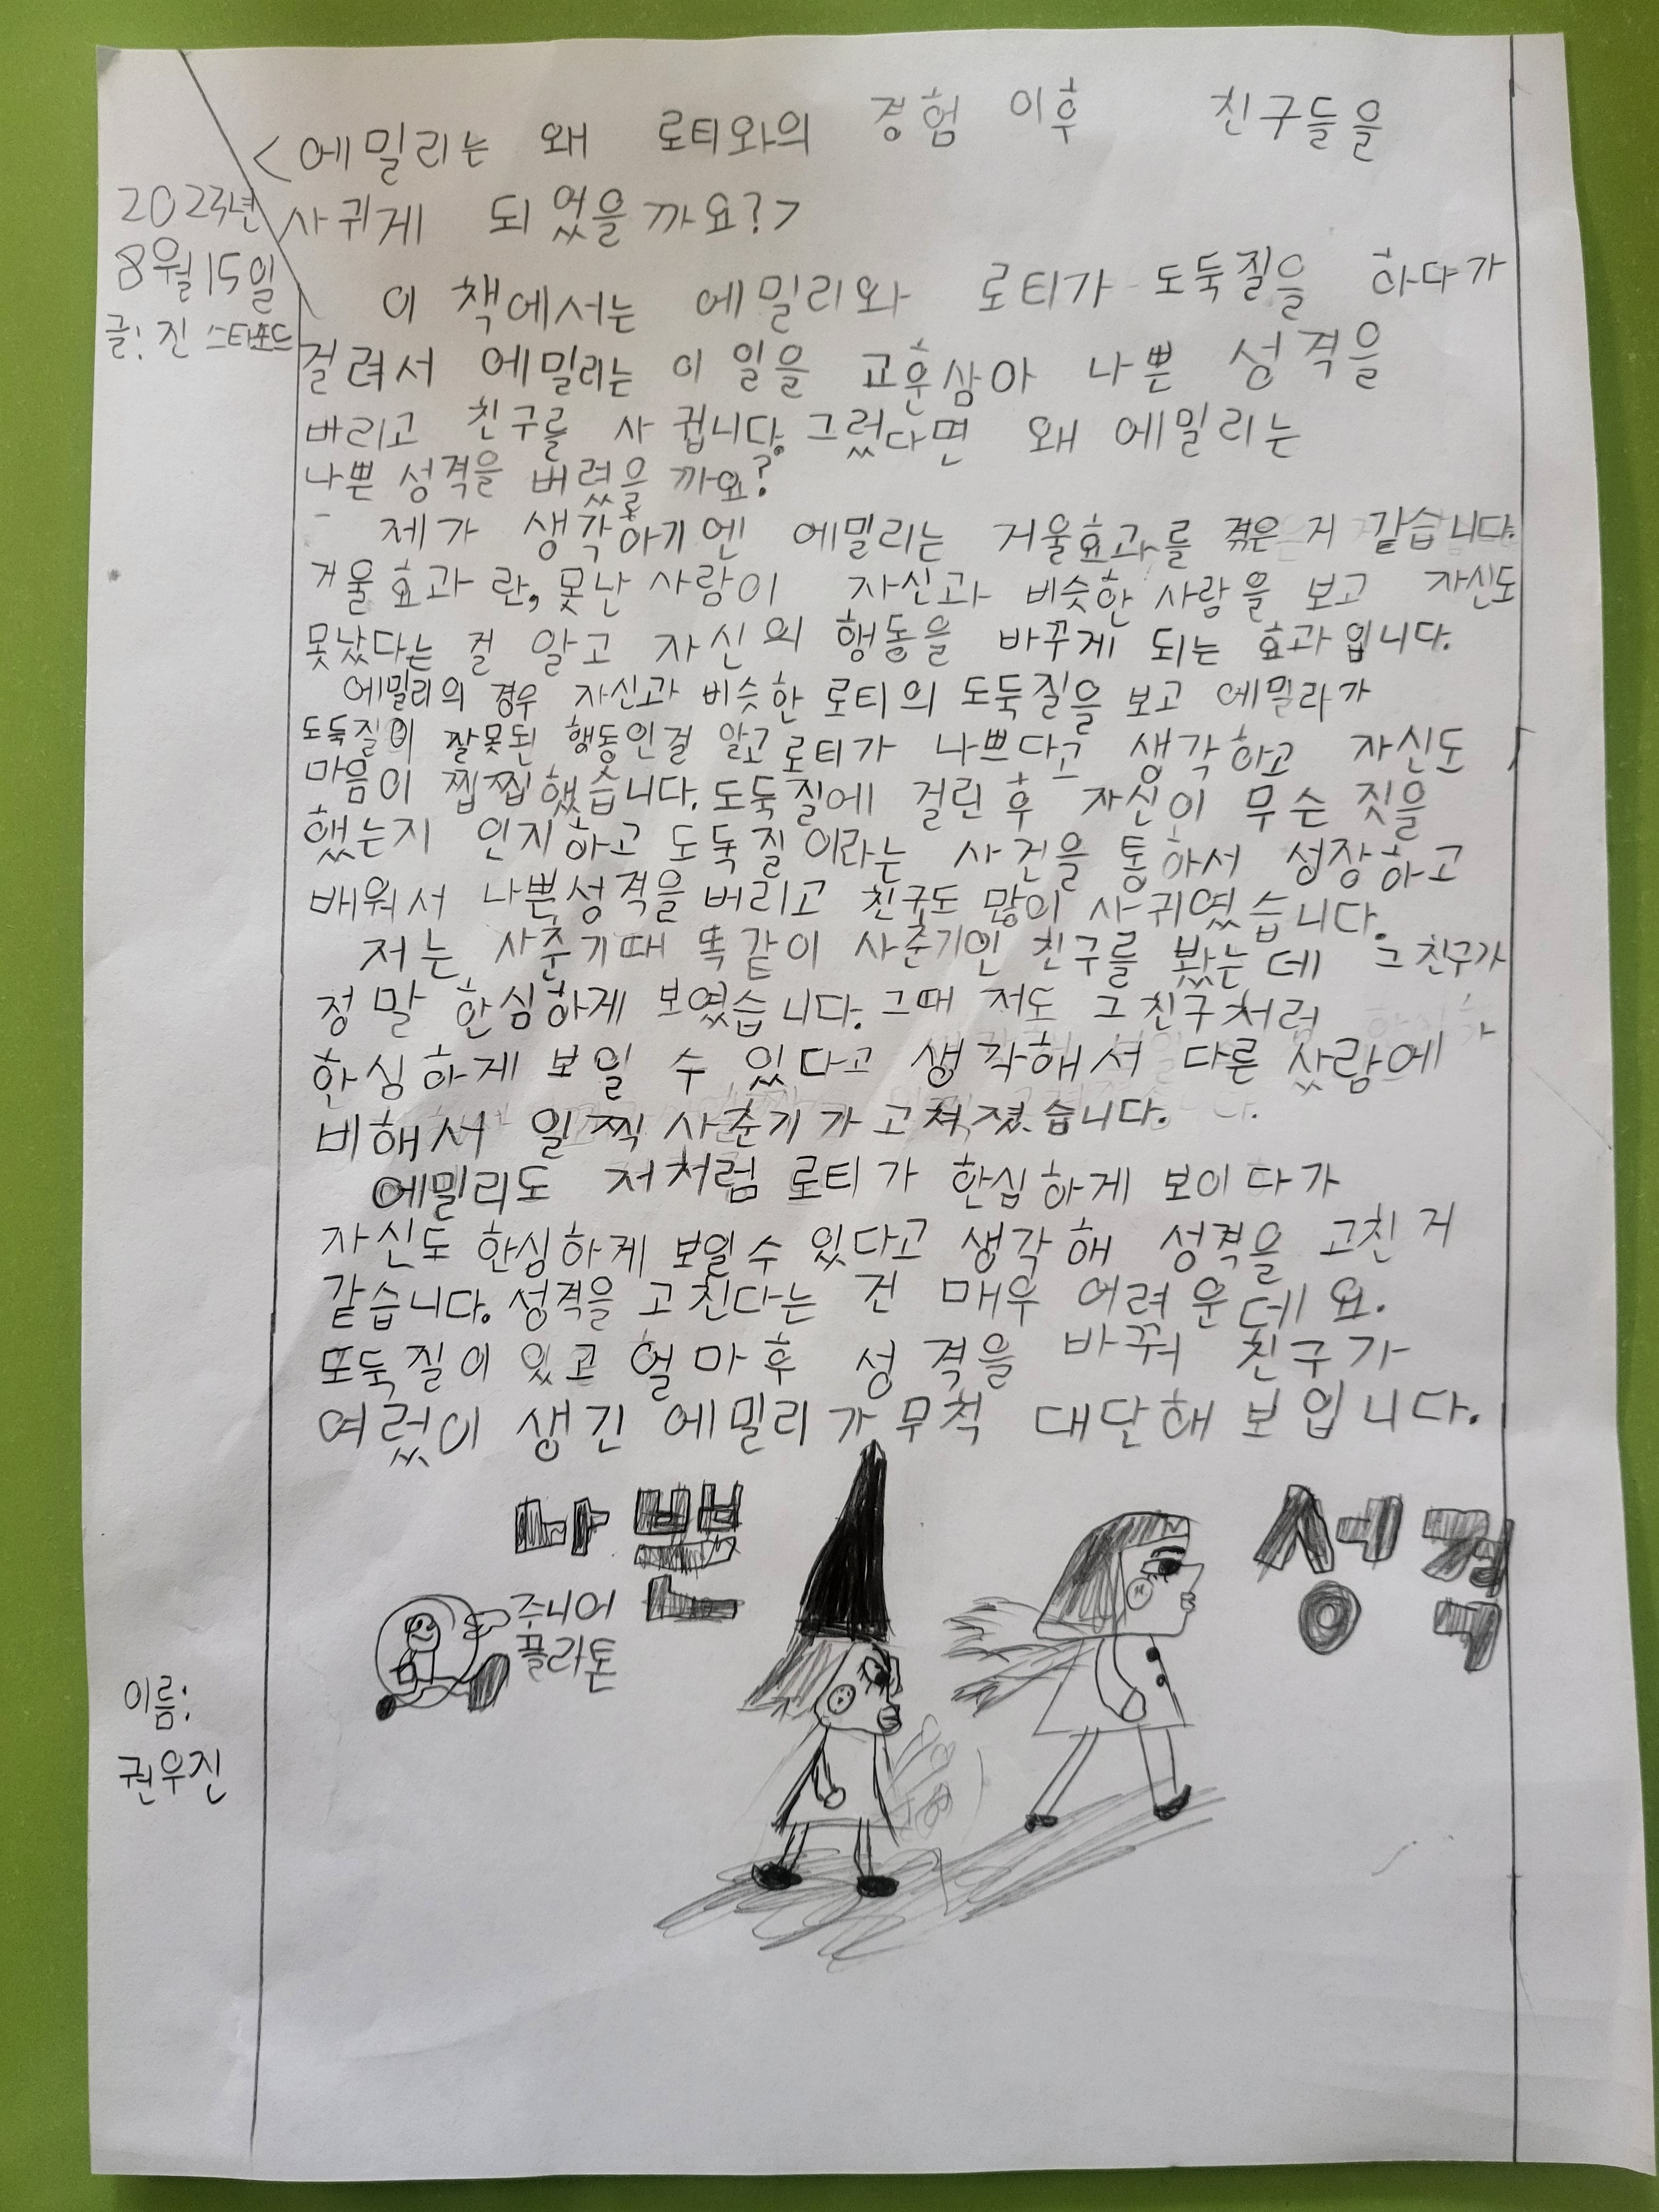 <에밀리는 왜 로티와의 경험 이후 친구들을
사귀게 되었을까요?>
2023년
8월 15일
글: 진 스태포드
이 책에서는 에밀리와 로티가 도둑질을 하다가
걸려서 에밀리는 이 일을 교훈삼아 나쁜 성격을
버리고 친구를 사귑니다. 그렀다면 왜 에밀리는
나쁜 성격을 버렸을까요?
제가 생각하기엔 에밀리는 거울효과를 겪은 거 같습니다.
거울효과란, 못난 사람이 자신과 비슷한 사람을 보고 자신도
못났다는 걸 알고 자신의 행동을 바꾸게 되는 효과입니다.
에밀리의 경우 자신과 비슷한 로티의 도둑질을 보고 에밀라가
도둑질이 잘못된 행동인걸 알고 로티가 나쁘다고 생각하고 자신도
마음이 찝찝했습니다. 도둑질에 걸린 후 자신이 무슨 짓을
했는지 인지하고 도둑질이라는 사건을 통하서 성장하고
배워서 나쁜성격을 버리고 친구도 많이 사귀였습니다.
저는 사춘기때 똑같이 사춘기인 친구를 봤는데 그 친구가
정말 한심하게 보였습니다. 그때 저도 그 친구처럼
한심하게 보일 수 있다고 생각해서 다른 사람에
비해서 일찍 사춘기가 고쳐졌습니다.
에밀리도 저처럼 로티가 한심하게 보이다가
자신도 한심하게 보일수 있다고 생각해 성격을 고친 거
같습니다. 성격을 고친다는 건 매우 어려운데요.
또둑질이 있고 얼마후 성격을 바꿔 친구가
여렀이 생긴 에밀리가 무척 대단해 보입니다.
나쁜 성격
주니어
플라톤
이름:
권우진